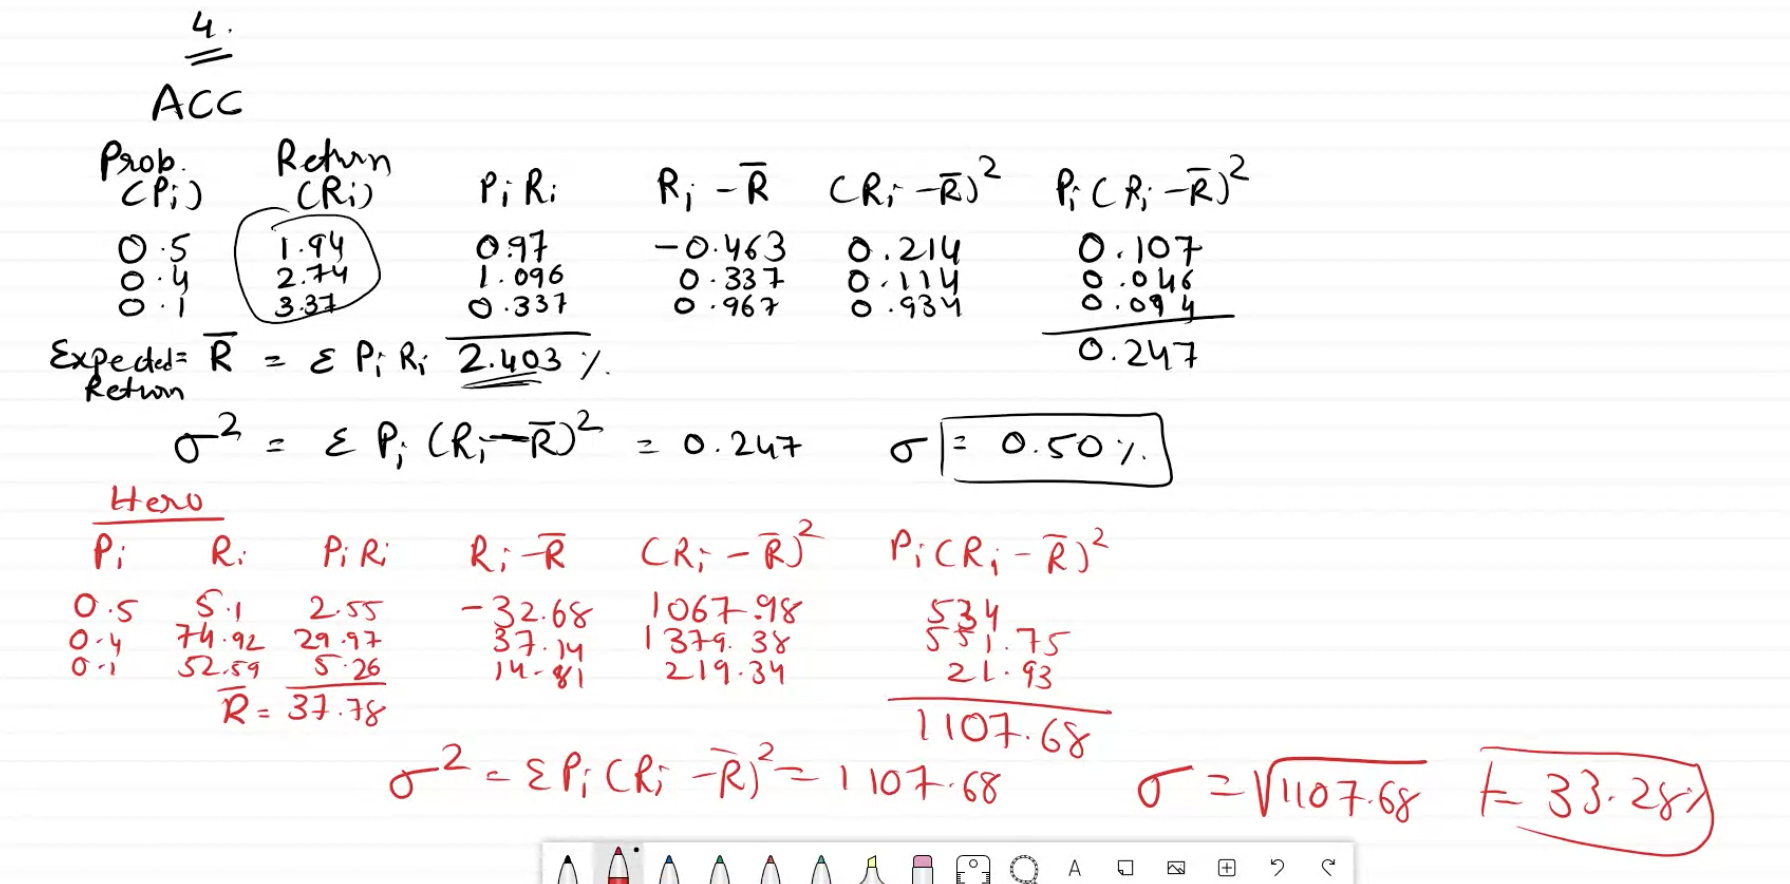 4.
ACC
Prob. (Pi) Return (Ri) PiRi Ri - R̅ (Ri - R̅)² Pi(Ri - R̅)²
0.5 1.94 0.97 -0.463 0.214 0.107
0.4 2.74 1.096 0.337 0.114 0.046
0.1 3.37 0.337 0.967 0.934 0.094
Expected Return = R̅ = Σ PiRi 2.403 % 0.247
σ² = Σ Pi (Ri - R̅)² = 0.247 σ = 0.50 %
Hero
Pi Ri PiRi Ri - R̅ (Ri - R̅)² Pi(Ri - R̅)²
0.5 5.1 2.55 -32.68 1067.98 534
0.4 74.92 29.97 37.14 1379.38 551.75
0.1 52.59 5.26 14.81 219.34 21.93
R̅ = 37.78 1107.68
σ² = Σ Pi (Ri - R̅)² = 1107.68 σ = √1107.68 = 33.28%
A